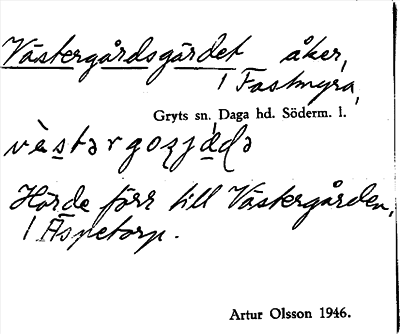 Västergårdsgärdet åker,
i Fastmyra,
Gryts sn, Daga hd. Söderm. l.
Hörde förr till Västergården,
i Äspetorp.
Artur Olsson 1946.